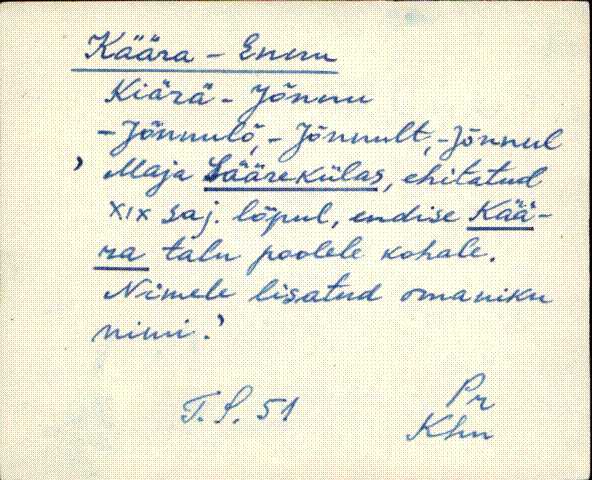 Käära - Ennu
Kiärä - Jõnnu
- Jõnnulõ, - Jõnnult, - Jõnnul
' Maja Säärekülas, ehitatud
XIX saj. lõpul, endise Kää-
ra talu poolele kohale.
Nimele lisatud omaniku
nimi.'
T. S. 51
Pr
Khn